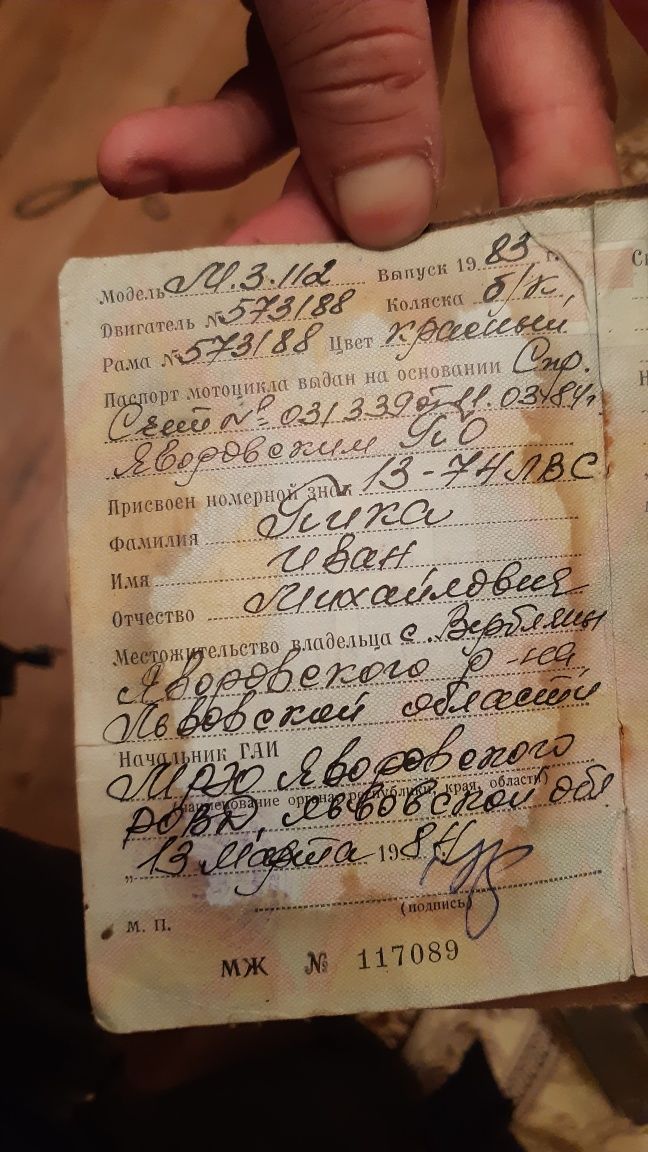 Модель М.3.112 Выпуск 1983 г.
Двигатель № 573188 Коляска б/к
Рама № 573188 Цвет красный
Паспорт мотоцикла выдан на основании Спр.
Счет № 031339 от 11.03.84 г
Яворовским ПО
Присвоен номерной знак 13-74 ЛВС
Фамилия Пика
Имя Иван
Отчество Михайлович
Местожительство владельца с. Вербляны
Яворовского р-на
Львовской области
Начальник ГАИ
МРЭО Яворовского
(наименование органа республики, края, области)
РОВД, Львовской обл
„13 марта 1984 г.
(подпись)
М. П.
МЖ № 117089